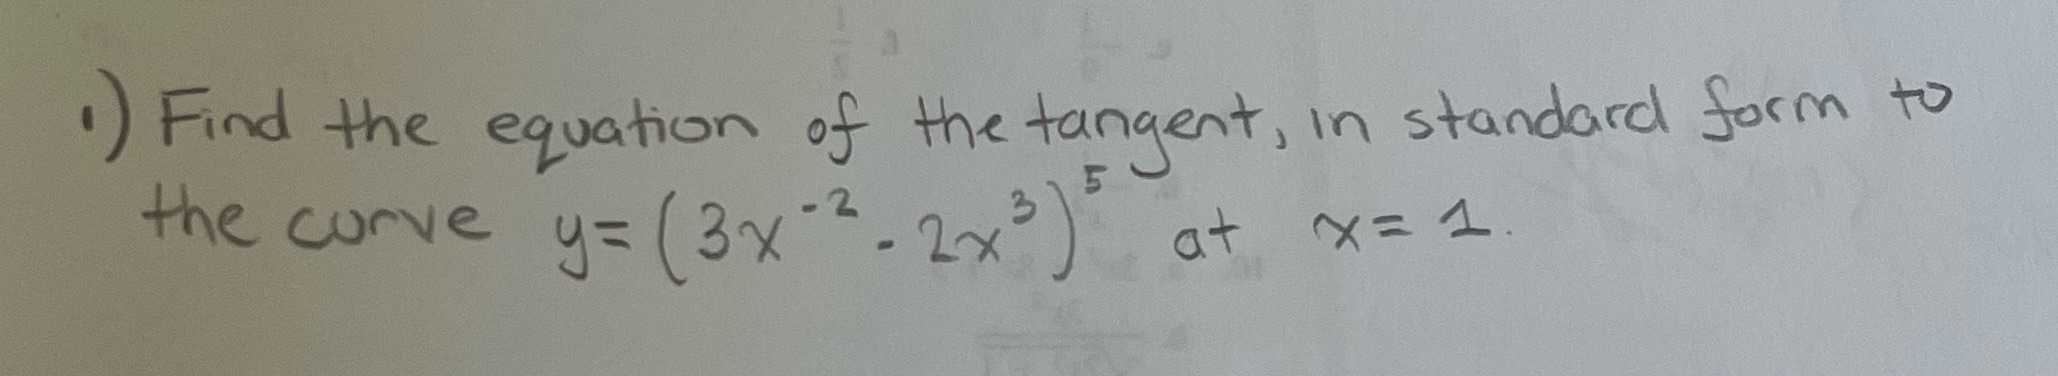 1) Find the equation of the tangent, in standard form to
the curve y = (3x⁻² - 2x³)⁵ at x = 1.